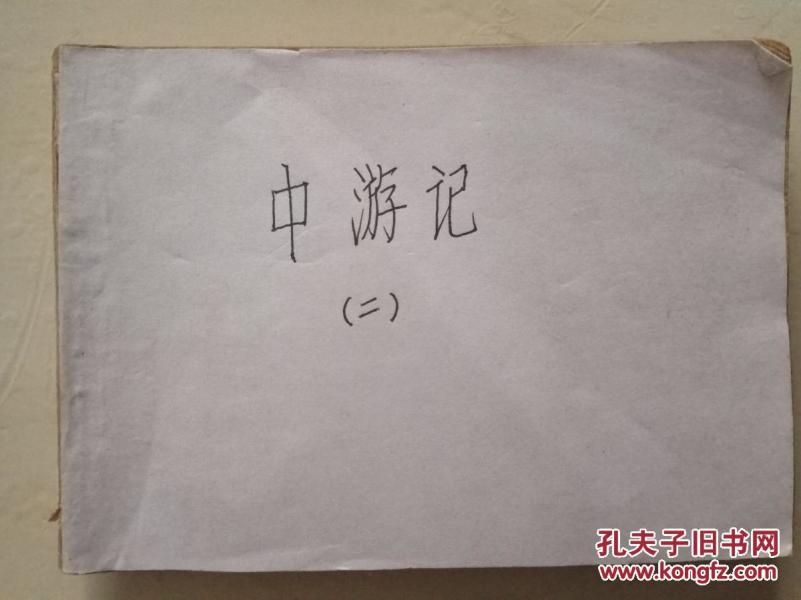 中游记
（二）
孔夫子旧书网
www.kongfz.com